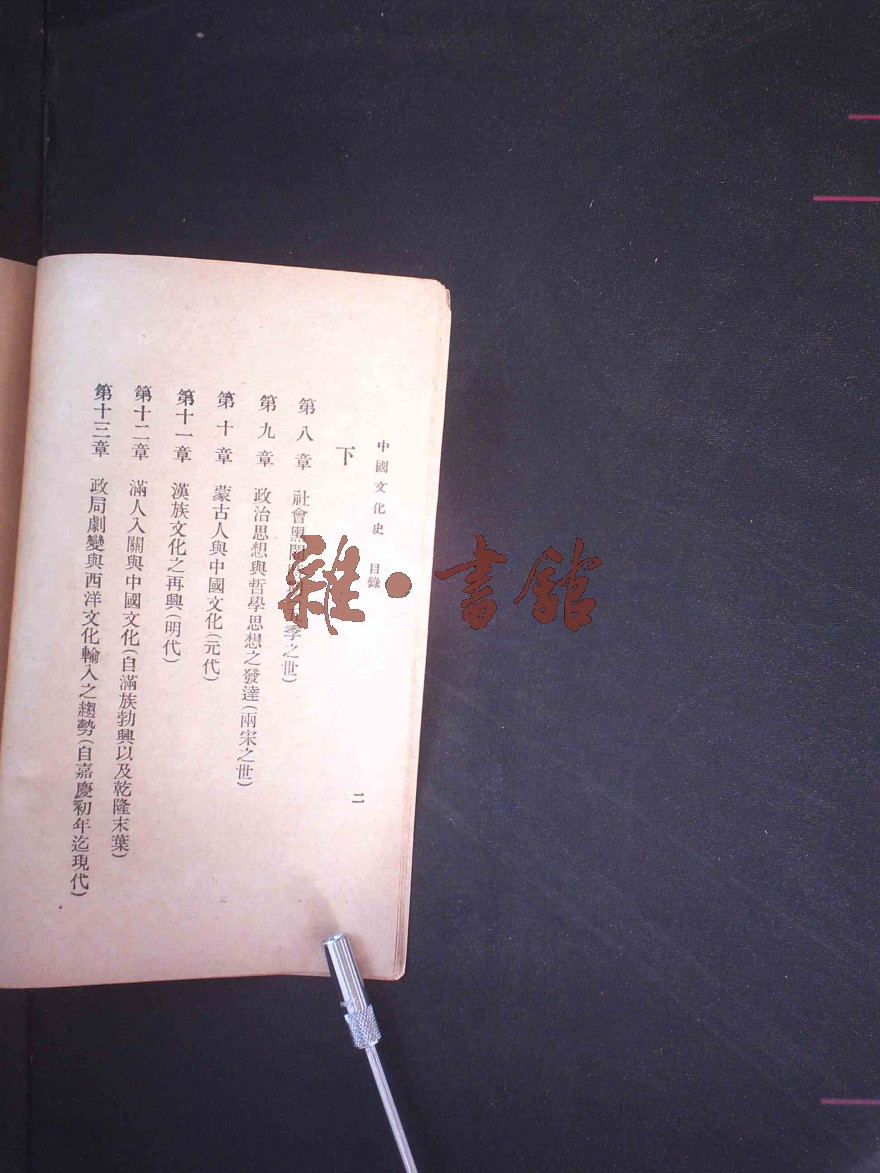 中國文化史 目錄
二
下
第八章 社會黑闇 季之世)
第九章 政治思想與哲學思想之發達(兩宋之世)
第十章 蒙古人與中國文化(元代)
第十一章 漢族文化之再興(明代)
第十二章 滿人入關與中國文化(自滿族勃興以及乾隆末葉)
第十三章 政局劇變與西洋文化輸入之趨勢(自嘉慶初年迄現代)
雜·書館